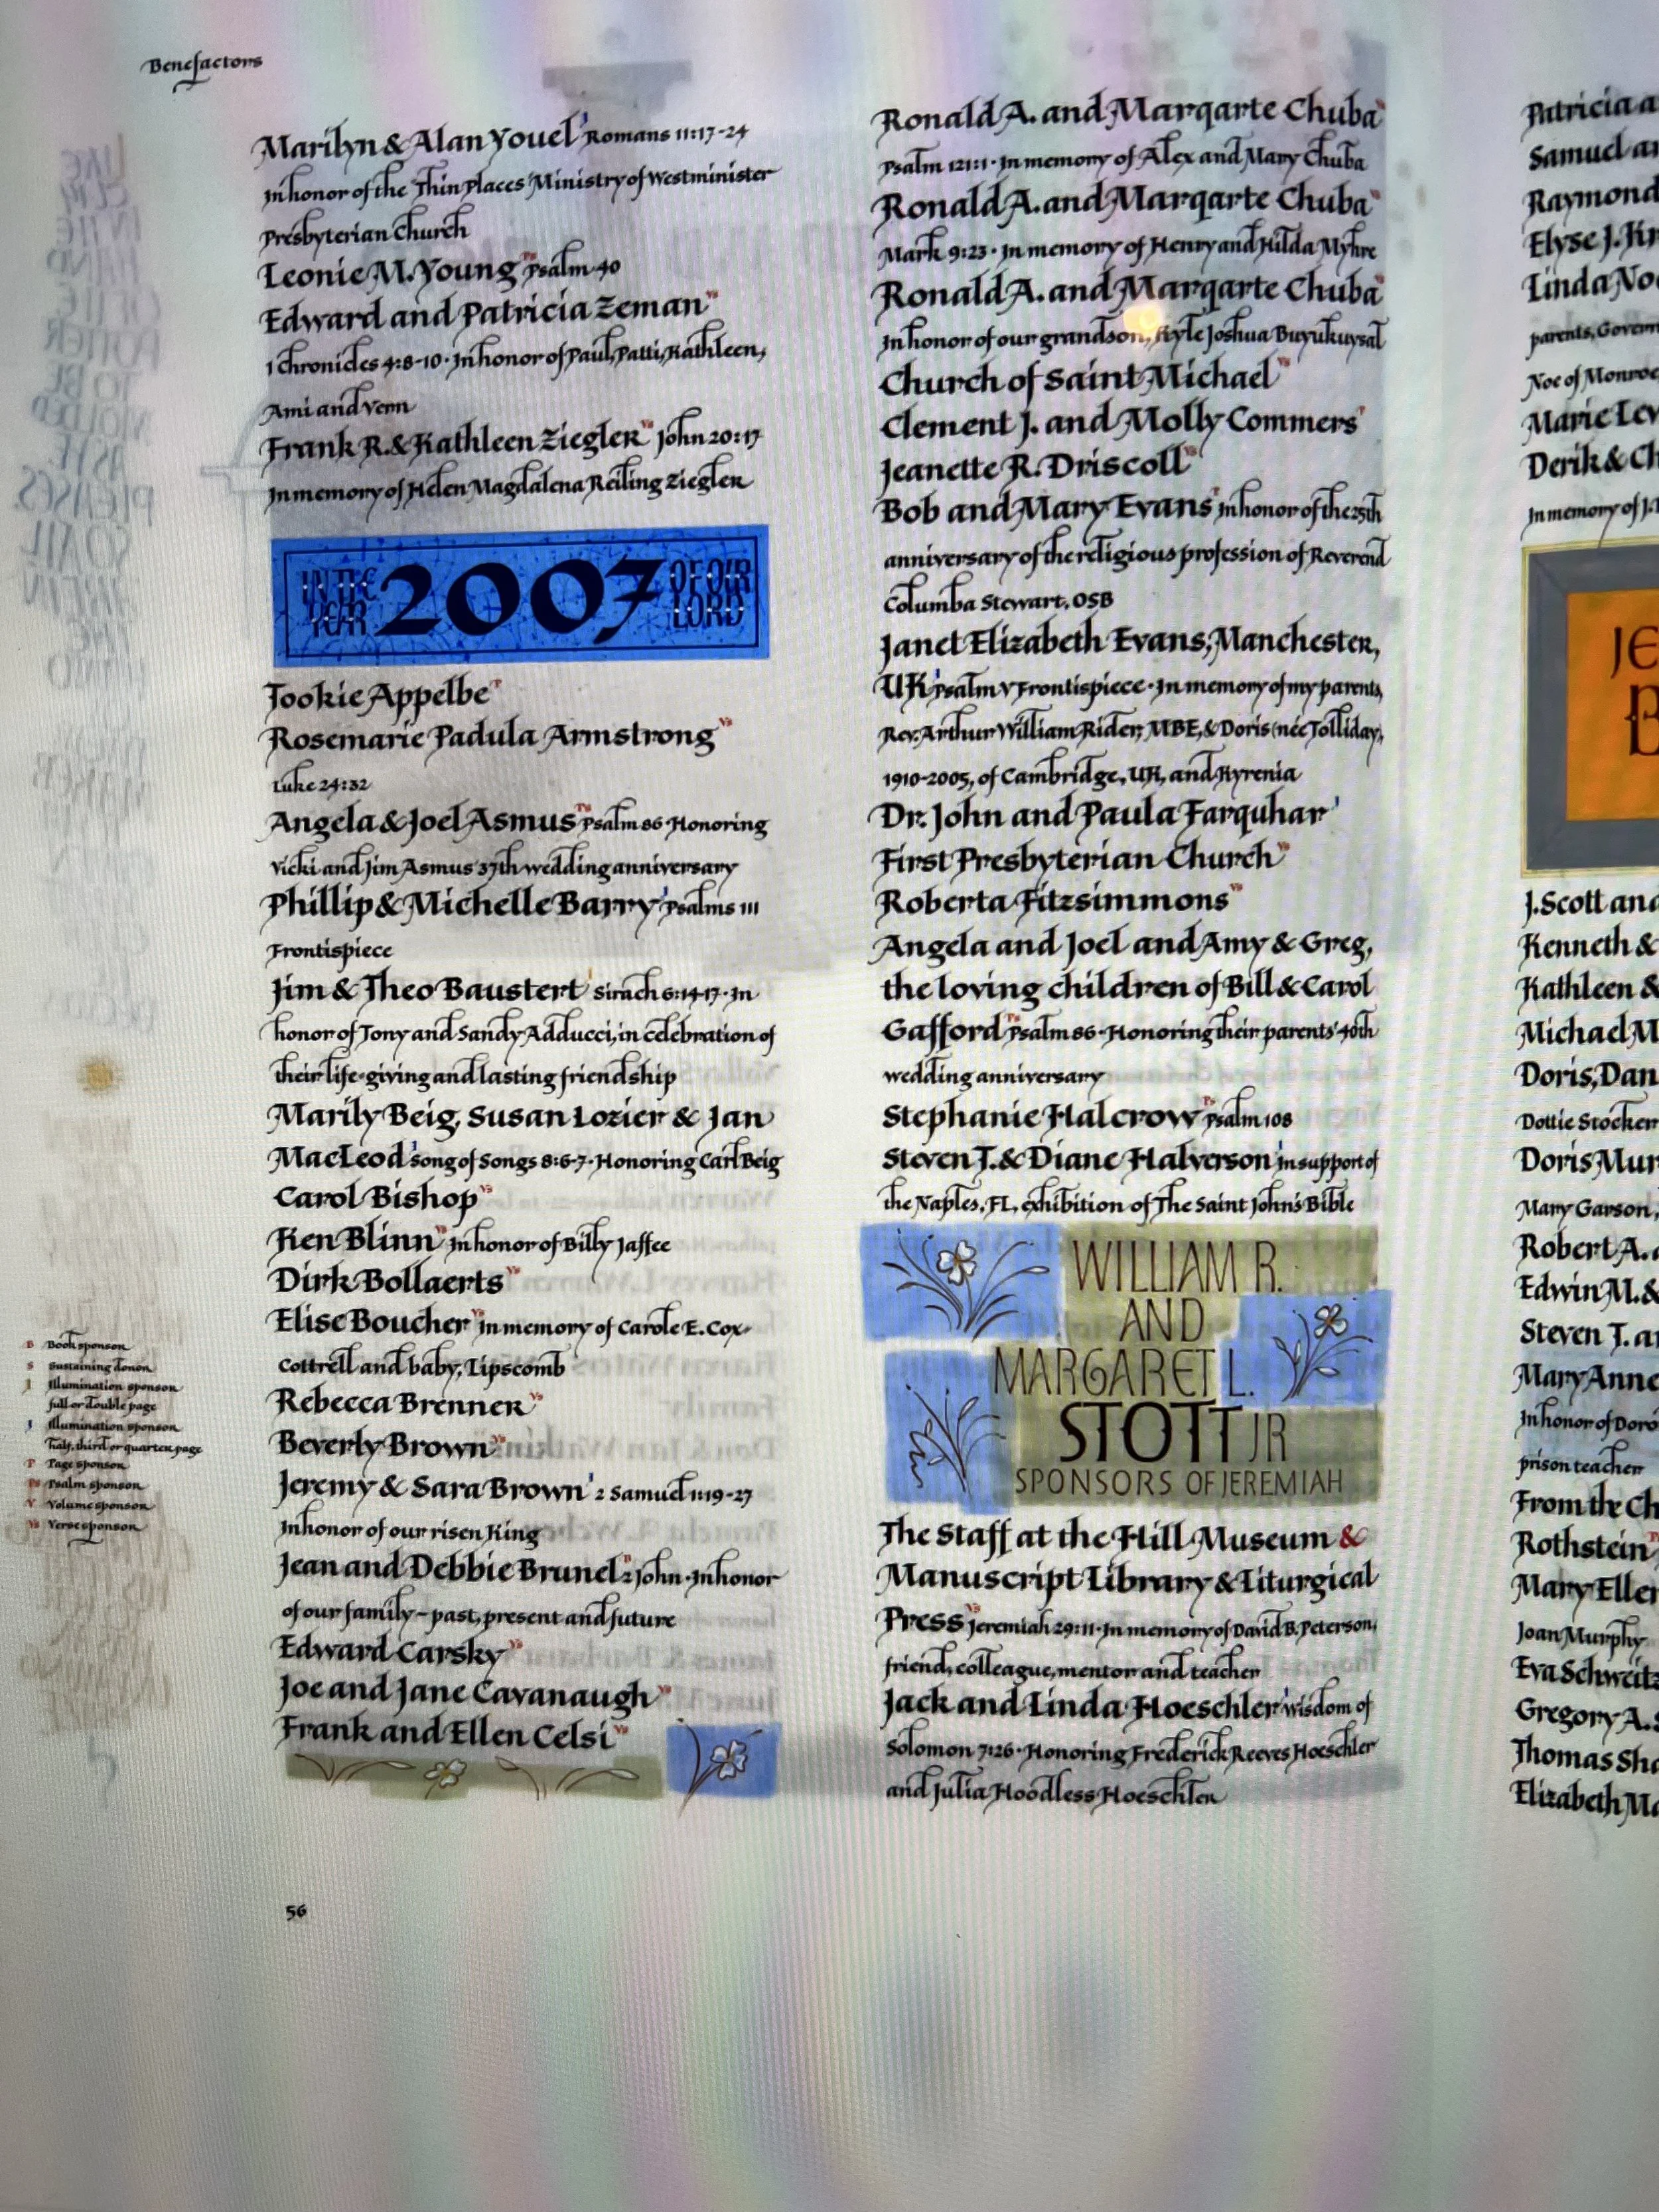 Benefactors
Marilyn & Alan Youel I Romans 11:17-24
In honor of the Thin Places Ministry of Westminister
Presbyterian Church
Leonie M. Young Ps Psalm 40
Edward and Patricia Zeman Vs
1 Chronicles 4:8-10 · In honor of Paul, Patti, Kathleen,
Ami and Venn
Frank R. & Kathleen Ziegler Vs John 20:17
In memory of Helen Magdalena Reiling Ziegler
IN THE YEAR 2007 OF OUR LORD
Tookie Appelbe P
Rosemarie Padula Armstrong Vs
Luke 24:32
Angela & Joel Asmus Ps Psalm 86 · Honoring
Vicki and Jim Asmus 37th wedding anniversary
Phillip & Michelle Barry I Psalms III
Frontispiece
Jim & Theo Baustert I Sirach 6:14-17 · In
honor of Tony and Sandy Adducci, in celebration of
their life-giving and lasting friendship
Marily Beig, Susan Lozier & Jan
MacLeod I Song of Songs 8:6-7 · Honoring Carl Beig
Carol Bishop Vs
Ken Blinn Vs In honor of Billy Jaffee
Dirk Bollaerts Vs
Elise Boucher Vs In memory of Carole E. Cox-
Cottrell and baby, Lipscomb
Rebecca Brenner Vs
Beverly Brown Vs
Jeremy & Sara Brown I 2 Samuel 1:19-27
In honor of our risen King
Jean and Debbie Brunel B 2 John · In honor
of our family – past, present and future
Edward Carsky Vs
Joe and Jane Cavanaugh Vs
Frank and Ellen Celsi Vs
B Book sponsor
S Sustaining donor
I Illumination sponsor
full or double page
I Illumination sponsor
half, third or quarter page
P Page sponsor
Ps Psalm sponsor
V Volume sponsor
Vs Verse sponsor
56
Ronald A. and Marqarte Chuba Vs
Psalm 121:1 · In memory of Alex and Mary Chuba
Ronald A. and Marqarte Chuba Vs
Mark 9:23 · In memory of Henry and Hilda Myhre
Ronald A. and Marqarte Chuba Vs
In honor of our grandson, Kyle Joshua Buyukuysal
Church of Saint Michael Vs
Clement J. and Molly Commers
Jeanette R. Driscoll Vs
Bob and Mary Evans In honor of the 25th
anniversary of the religious profession of Reverend
Columba Stewart, OSB
Janet Elizabeth Evans, Manchester,
UK I Psalm V Frontispiece · In memory of my parents,
Rev. Arthur William Rider, MBE, & Doris (née Tolliday),
1910-2005, of Cambridge, UK, and Kyrenia
Dr. John and Paula Farquhar I
First Presbyterian Church Vs
Roberta Fitzsimmons Vs
Angela and Joel and Amy & Greg,
the loving children of Bill & Carol
Gafford Ps Psalm 86 · Honoring their parents' 40th
wedding anniversary
Stephanie Halcrow Ps Psalm 108
Steven T. & Diane Halverson I In support of
the Naples, FL, exhibition of The Saint John's Bible
WILLIAM R.
AND
MARGARET L.
STOTT JR
SPONSORS OF JEREMIAH
The Staff at the Hill Museum &
Manuscript Library & Liturgical
Press Vs Jeremiah 29:11 · In memory of David B. Peterson,
friend, colleague, mentor and teacher
Jack and Linda Hoeschler I Wisdom of
Solomon 7:26 · Honoring Frederick Reeves Hoeschler
and Julia Hoodless Hoeschler
Patricia a
Samuel an
Raymond
Elyse J. Kr
Linda Noe
parents, Govern
Noe of Monroe
Marie Lev
Derik & Ch
In memory of J.
JE
J. Scott and
Kenneth &
Kathleen &
Michael M
Doris, Dan
Dottie Stocker
Doris Mur
Mary Garson,
Robert A.
Edwin M. &
Steven T. an
Mary Anne
In honor of Doro
prison teacher
From the Ch
Rothstein
Mary Eller
Joan Murphy
Eva Schweitz
Gregory A. S
Thomas Sha
Elizabeth Ma